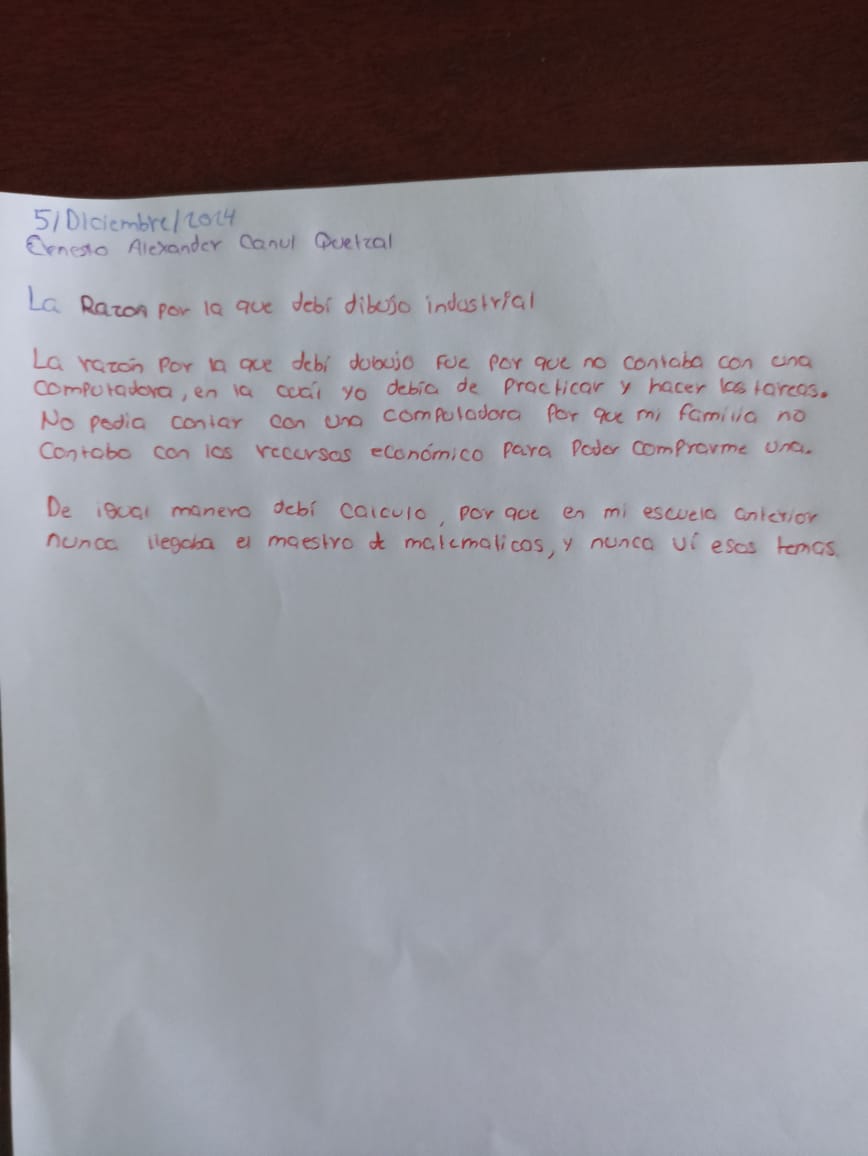 5/Diciembre/2024
Ernesto Alexander Canul Quetzal
La Razon por la que debi dibujo industrial
La razón por la que debi dubujo fue por que no contaba con una
computadora, en la cuál yo debia de practicar y hacer las tareas.
No podia contar con una computadora por que mi familia no
Contaba con los recursos económico para Poder comprarme una.
De igual manera debí calculo, por que en mi escuela anterior
nunca llegaba el maestro de matematicas, y nunca ví esos temas